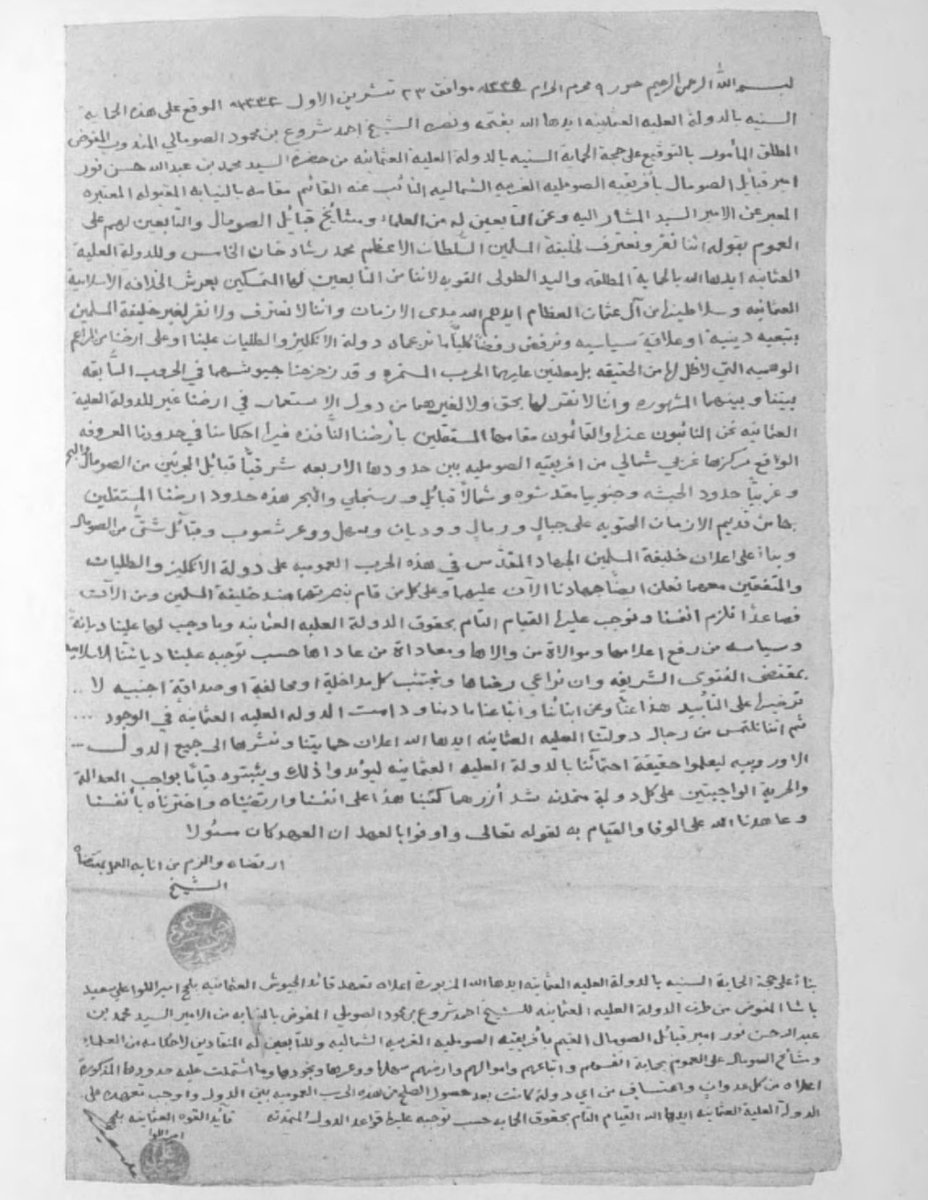 بسم الله الرحمن الرحيم حرر ٩ محرم الحرام ١٣٣٥ موافق ٢٣ تشرين الاول ١٣٣٢ الموقع على هذه الحماية
السنيه بالدولة العليه العثمانيه ايدها الله بختمه ونصه الشيخ احمد شروع بن محمود الصومالي المندوب المفوض
المطلق المأمور بالتوقيع على حجة الحماية السنيه بالدولة العلية العثمانيه من حضرة السيد محمد بن عبد الله حسن نور
امير قبائل الصومال بأفريقيه الصوماليه الغربيه الشماليه النائب عنه القائم مقامه بالنيابة المقبوله المعتبره
المعبر عن الامير السيد المشار اليه وعن التابعين له من العلماء ومشائخ قبائل الصومال والتابعين لهم على
العموم بقوله اننا نقر ونعترف لخليفة المسلمين السلطان الاعظم محمد رشاد خان الخامس وللدولة العلية
العثمانيه ايدها الله بالحماية المطلقه واليد الطولى القويه لاننا من التابعين لها المتمسكين بعرش الخلافه الاسلامية
العثمانيه وسلاطينها من آل عثمان العظام ايدهم الله مدى الازمان واننا لا نعترف ولا نقر لغير خليفة المسلمين
بتبعيه دينية او علاقة سياسيه ونرفض رفضاً كلياً ما تدعيان دولة الانكليز والطليان علينا او على ارضنا من المزاعم
الوهميه التي لا ظل لها من الحقيقه بل معلنين عليهما الحرب المستمره وقد زحزحنا جيوشهما في الحروب السابقه
بيننا وبينهما المشهوره واننا لا نقر لهما بحق ولا لغيرهما من دول الاستعمار في ارضنا غير للدولة العلية
العثمانيه نحن النائبون عنها والقائمون مقامها المستقلين بأرضنا النافذه فيها احكامنا في حدودنا المعروفه
الواقع مركزها غربي شمالي من افريقيه الصوماليه بين حدودها الاربعه شرقياً قبائل المجرتين من الصومال والبحر
وغربياً حدود الحبشه وجنوبيا مقدشوه وشمالاً قبائل ورسنجلي والبحر هذه حدود ارضنا المستقلين
بها من قديم الازمان المحتويه على جبال ورمال ووديان وسهل ووعر شعوب وقبائل شتى من الصومال
وبناء على اعلان خليفة المسلمين الجهاد المقدس في هذه الحرب العموميه على دولة الانكليز والطليان
والمتفقين معهما نعلن ايضاً جهادنا الآن عليهما وعلى كل من قام بنصرتهما ضد خليفة المسلمين ومن الآن
فصاعداً نلزم انفسنا ونوجب عليها القيام التام بحقوق الدولة العليه العثمانيه وما وجب لها علينا ديانة
وسياسه من رفع اعلامها وموالاة من والاها ومعاداة من عاداها حسب توجبه علينا ديانتنا الاسلاميه
بمقتضى الفتوى الشريفه وان نراعي رضاها ونجتنب كل مداخلة او محالفة او صداقة اجنبيه لا
ترضيها على التأبيد هذا عنا وعن ابنائنا واتباعنا ما دمنا ودامت الدوله العليه العثمانيه في الوجود
ثم اننا نلتمس من رجال دولتنا العليه العثمانيه ايدها الله اعلان حمايتنا ونشرها الى جميع الدول
الاوروبيه ليعلموا حقيقة احتمائنا بالدولة العليه العثمانيه ليؤيدوا ذلك ويثبتوه قياماً بواجب العدالة
والحرية الواجبتين على كل دولة متمدنه شد ازرهما كتبنا هذا على انفسنا وارتضيناه واخترناه بأنفسنا
وعاهدنا الله على الوفا والقيام به لقوله تعالى واوفوا بالعهد ان العهد كان مسئولا
ارتضاه والزم من انابه العمل بمقتضاه
الشيخ
بناء على حجة الحماية السنيه بالدولة العليه العثمانيه ايدها الله المزبورة اعلاه تعهد قائد الجيوش العثمانيه بلحج امير اللوا علي سعيد
باشا المفوض من طرف الدولة العليه العثمانيه للشيخ احمد شروع بن محمود الصومالي المفوض بالنيابه من الامير السيد محمد بن
عبد الرحمن نور امير قبائل الصومال المقيم بأفريقيه الصوماليه الغربيه الشماليه وللتابعين له المنقادين لاحكامه من العلماء
ومشائخ الصومال على العموم بحماية انفسهم واتباعهم واموالهم وارضهم سهلها ووعرها وبحورها وما اشتملت عليه حدودها المذكورة
اعلاه من كل عدوان واعتساف من اي دولة كانت بعد حصول الصلح من هذه الحرب العموميه بين الدول واوجب تعهده على
الدولة العلية العثمانيه ايدها الله القيام التام بحقوق الحمايه حسب توجبه عليها قواعد الدول المتمدنه قائد القوه العثمانيه بلحج
امير اللوا